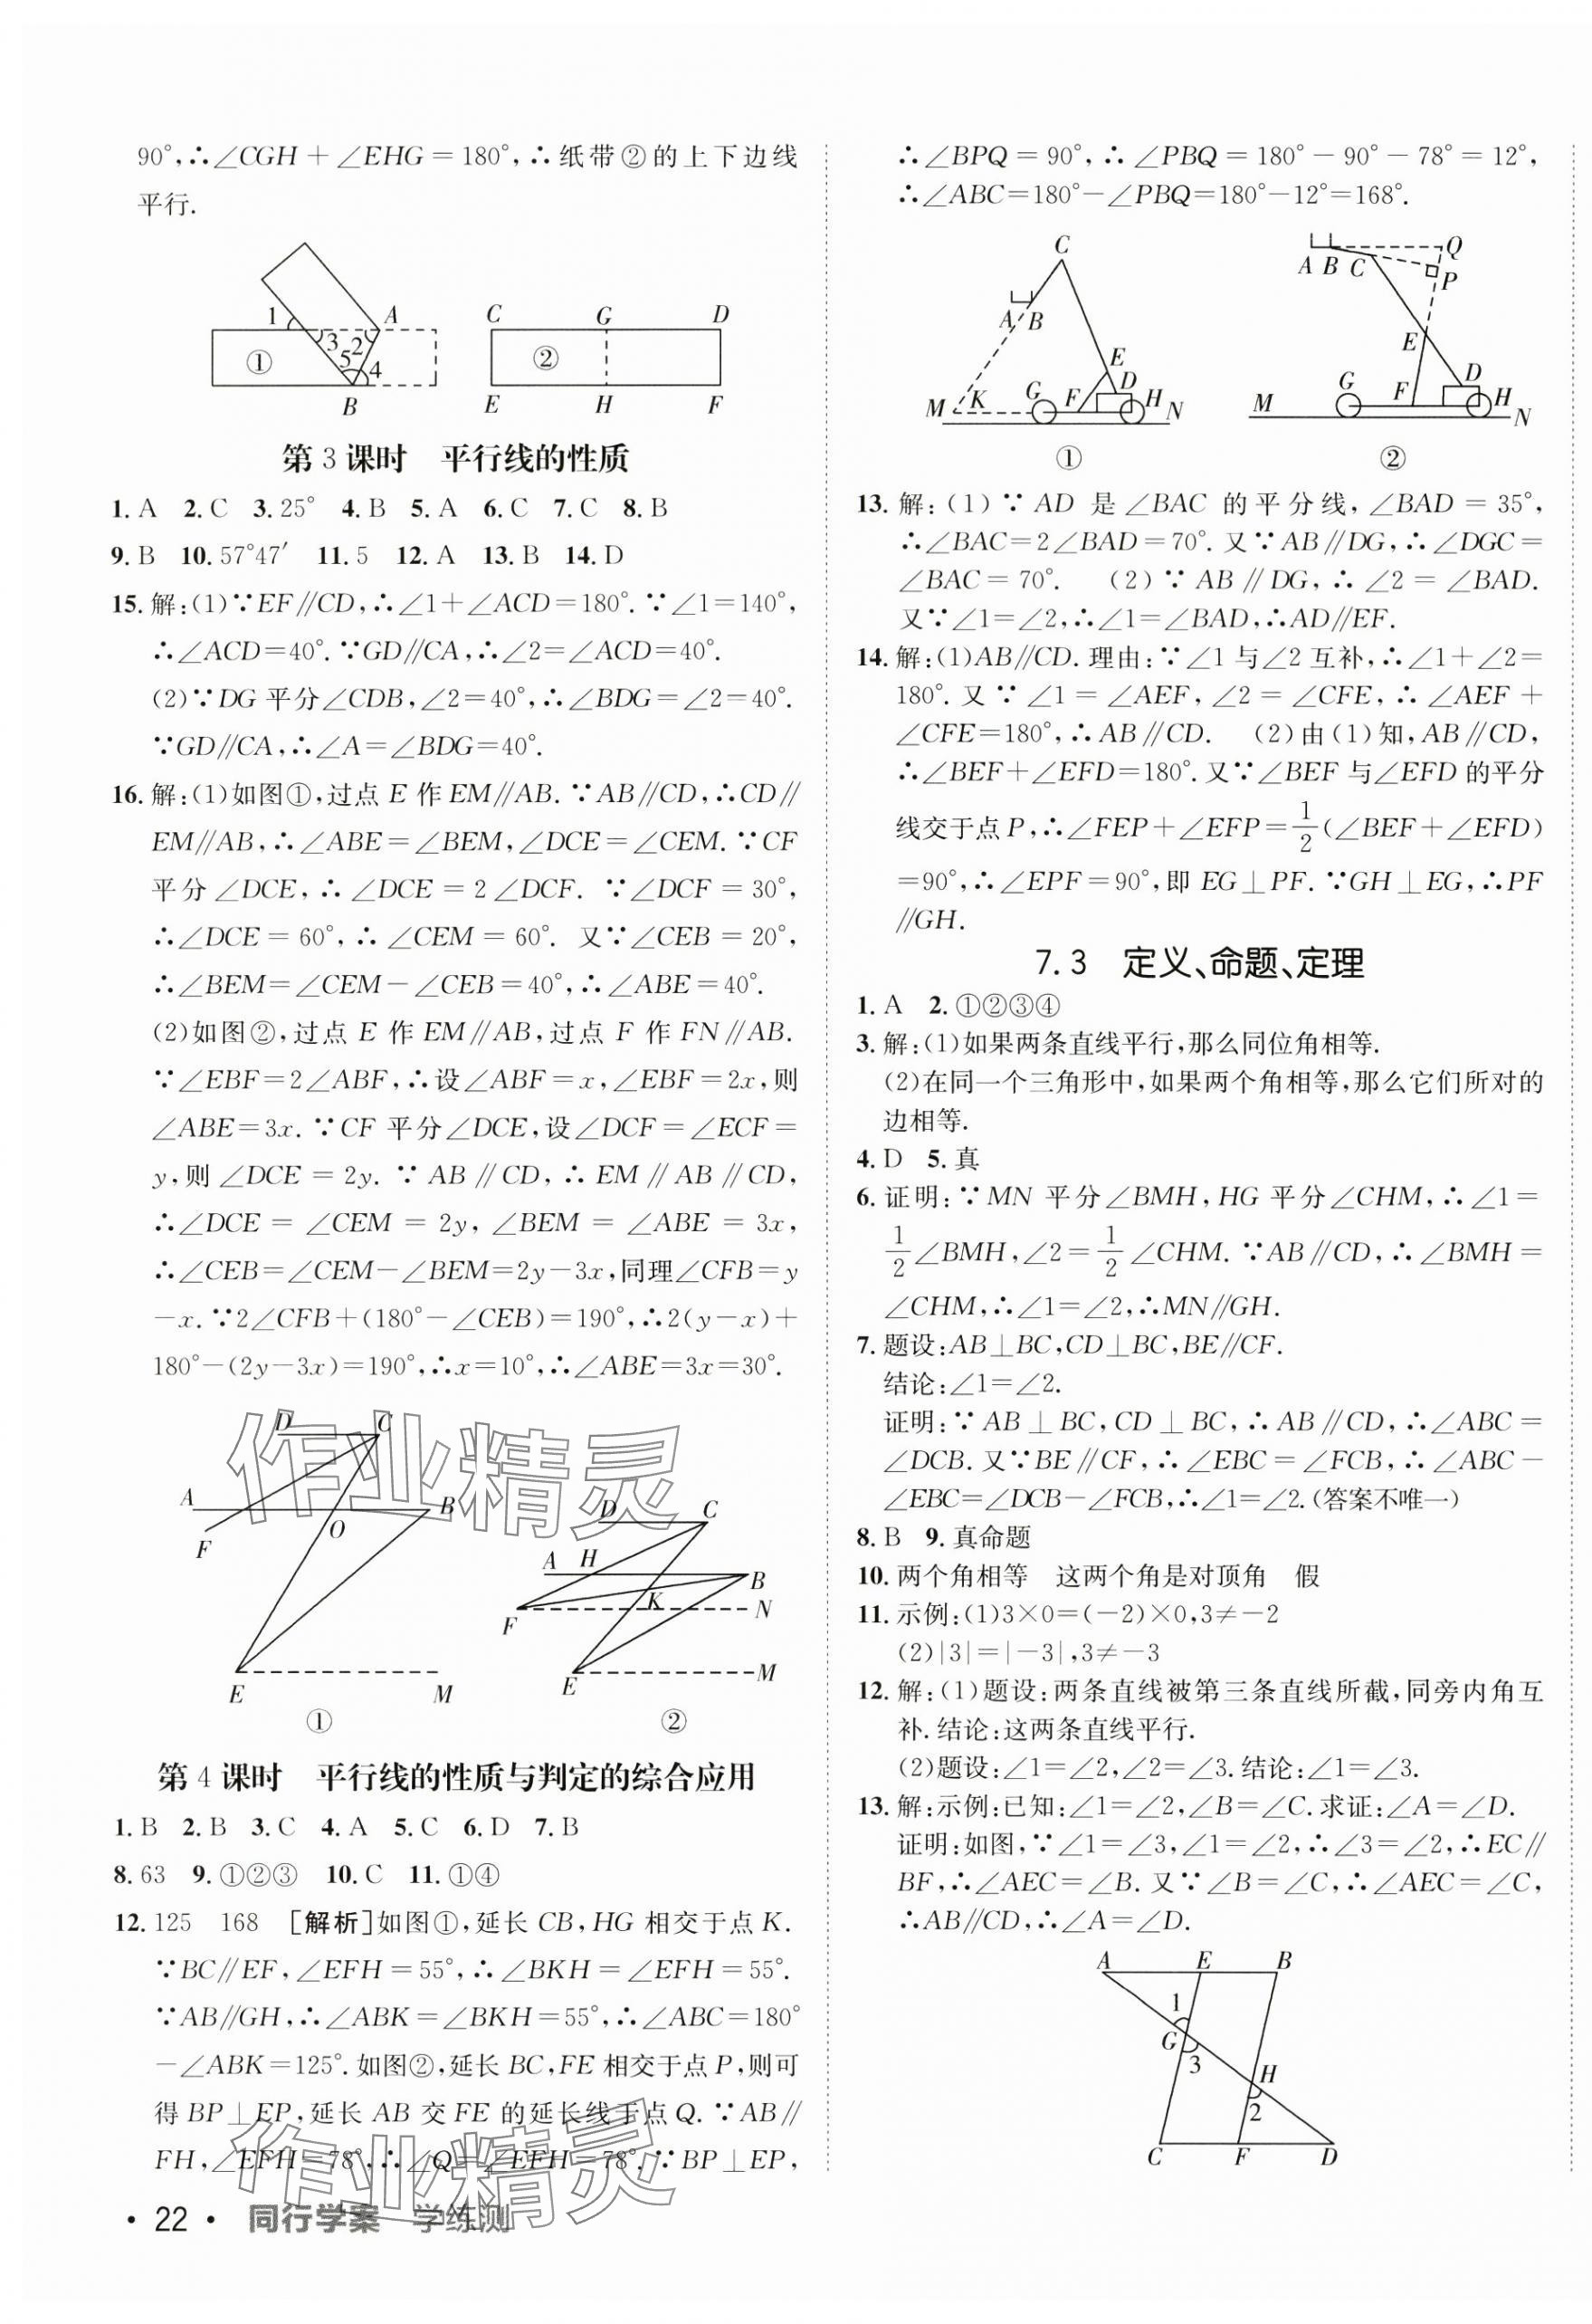 90°,∴∠CGH+∠EHG=180°,∴纸带②的上下边线
平行.
1
3
2
5
4
A
B
①
C
G
D
②
E
H
F
第3课时 平行线的性质
1. A 2. C 3. 25° 4. B 5. A 6. C 7. C 8. B
9. B 10. 57°47′ 11. 5 12. A 13. B 14. D
15. 解:(1)∵EF∥CD,∴∠1+∠ACD=180°.∵∠1=140°,
∴∠ACD=40°.∵GD∥CA,∴∠2=∠ACD=40°.
(2)∵DG平分∠CDB,∠2=40°,∴∠BDG=∠2=40°.
∵GD∥CA,∴∠A=∠BDG=40°.
16. 解:(1)如图①,过点E作EM∥AB.∵AB∥CD,∴CD∥
EM∥AB,∴∠ABE=∠BEM,∠DCE=∠CEM.∵CF
平分∠DCE,∴∠DCE=2∠DCF. ∵∠DCF=30°,
∴∠DCE=60°,∴∠CEM=60°. 又∵∠CEB=20°,
∴∠BEM=∠CEM-∠CEB=40°,∴∠ABE=40°.
(2)如图②,过点E作EM∥AB,过点F作FN∥AB.
∵∠EBF=2∠ABF,∴设∠ABF=x,∠EBF=2x,则
∠ABE=3x.∵CF平分∠DCE,设∠DCF=∠ECF=
y,则∠DCE=2y.∵AB∥CD,∴EM∥AB∥CD,
∴∠DCE=∠CEM=2y,∠BEM=∠ABE=3x,
∴∠CEB=∠CEM-∠BEM=2y-3x,同理∠CFB=y
-x.∵2∠CFB+(180°-∠CEB)=190°,∴2(y-x)+
180°-(2y-3x)=190°,∴x=10°,∴∠ABE=3x=30°.
作业精灵
D
C
A
B
O
F
E
M
①
D
C
A
H
B
K
F
N
E
M
②
第4课时 平行线的性质与判定的综合应用
1. B 2. B 3. C 4. A 5. C 6. D 7. B
8. 63 9. ①②③ 10. C 11. ①④
12. 125 168 [解析]如图①,延长CB,HG相交于点K.
∵BC∥EF,∠EFH=55°,∴∠BKH=∠EFH=55°.
∵AB∥GH,∴∠ABK=∠BKH=55°,∴∠ABC=180°
-∠ABK=125°.如图②,延长BC,FE相交于点P,则可
得BP⊥EP,延长AB交FE的延长线于点Q.∵AB∥
FH,∠EFH=78°,∴∠Q=∠EFH=78°.∵BP⊥EP,
作业精灵
· 22 · 同行学案 学练测
∴∠BPQ=90°,∴∠PBQ=180°-90°-78°=12°,
∴∠ABC=180°-∠PBQ=180°-12°=168°.
C
A
B
E
D
M
K
G
F
H
N
①
Q
A
B
C
P
E
D
M
G
F
H
N
②
13. 解:(1)∵AD是∠BAC的平分线,∠BAD=35°,
∴∠BAC=2∠BAD=70°.又∵AB∥DG,∴∠DGC=
∠BAC=70°. (2)∵AB∥DG,∴∠2=∠BAD.
又∵∠1=∠2,∴∠1=∠BAD,∴AD∥EF.
14. 解:(1)AB∥CD.理由:∵∠1与∠2互补,∴∠1+∠2=
180°.又∵∠1=∠AEF,∠2=∠CFE,∴∠AEF+
∠CFE=180°,∴AB∥CD. (2)由(1)知,AB∥CD,
∴∠BEF+∠EFD=180°.又∵∠BEF与∠EFD的平分
线交于点P,∴∠FEP+∠EFP=1/2(∠BEF+∠EFD)
=90°,∴∠EPF=90°,即EG⊥PF.∵GH⊥EG,∴PF
∥GH.
7.3 定义、命题、定理
1. A 2. ①②③④
3. 解:(1)如果两条直线平行,那么同位角相等.
(2)在同一个三角形中,如果两个角相等,那么它们所对的
边相等.
4. D 5. 真
6. 证明:∵MN平分∠BMH,HG平分∠CHM,∴∠1=
1/2∠BMH,∠2=1/2∠CHM.∵AB∥CD,∴∠BMH=
∠CHM,∴∠1=∠2,∴MN∥GH.
7. 题设:AB⊥BC,CD⊥BC,BE∥CF.
结论:∠1=∠2.
证明:∵AB⊥BC,CD⊥BC,∴AB∥CD,∴∠ABC=
∠DCB.又∵BE∥CF,∴∠EBC=∠FCB,∴∠ABC-
∠EBC=∠DCB-∠FCB,∴∠1=∠2.(答案不唯一)
8. B 9. 真命题
10. 两个角相等 这两个角是对顶角 假
11. 示例:(1)3×0=(-2)×0,3≠-2
(2)|3|=|-3|,3≠-3
12. 解:(1)题设:两条直线被第三条直线所截,同旁内角互
补.结论:这两条直线平行.
(2)题设:∠1=∠2,∠2=∠3.结论:∠1=∠3.
13. 解:示例:已知:∠1=∠2,∠B=∠C.求证:∠A=∠D.
证明:如图,∵∠1=∠3,∠1=∠2,∴∠3=∠2,∴EC∥
BF,∴∠AEC=∠B.又∵∠B=∠C,∴∠AEC=∠C,
∴AB∥CD,∴∠A=∠D.
A
E
B
1
G
3
H
2
C
F
D